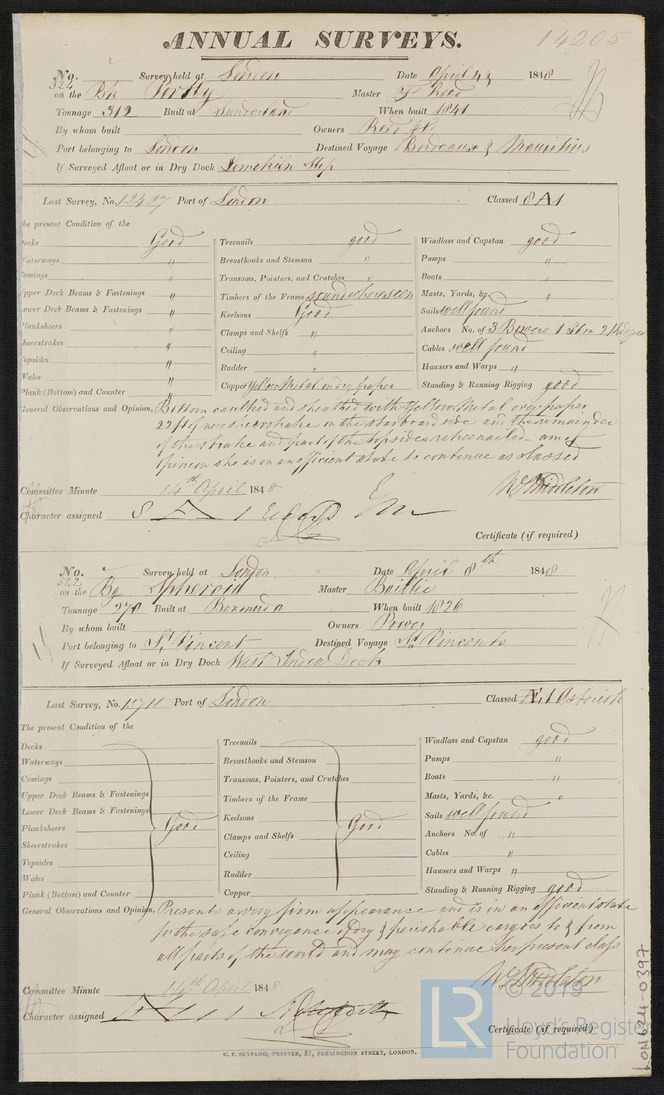 ANNUAL SURVEYS. 14205
No. 522 Survey held at London Date April 4 1848
on the Bk Master Reed
Tonnage 312 Built at Sunderland When built 1841
By whom built Owners Reed &c
Port belonging to London Destined Voyage Bordeaux & Mauritius
If Surveyed Afloat or in Dry Dock Limekiln Slip
Last Survey, No. 12427 Port of London Classed 8 A 1
The present Condition of the
Decks Good Treenails good Windlass and Capstan good
Waterways " Breasthooks and Stemson " Pumps "
Comings " Transoms, Pointers, and Crutches " Boats "
Upper Deck Beams & Fastenings " Timbers of the Frame sound where seen Masts, Yards, &c. "
Lower Deck Beams & Fastenings " Keelsons Good Sails well found
Planksheers " Clamps and Shelfs " Anchors No. of 3 Bowers 1 Strm 2 Kedges
Sheerstrakes " Ceiling " Cables well found
Topsides " Rudder " Hawsers and Warps "
Wales " Copper Yellow Metal on dry paper Standing & Running Rigging good
Plank (Bottom) and Counter "
General Observations and Opinion, Bottom caulked and sheathed with Yellow Metal over paper
22 ft of new sheerstrake on the starboard side and the remainder
of the strake and part of the topsides retreenailed am of
opinion she is in an efficient state to continue as classed
Committee Minute 14th April 1848 Middleton
Character assigned 8 A 1
Certificate (if required)
No. 522 Survey held at London Date April 8th 1848
on the Bg Spheroid Master Baillie
Tonnage 278 Built at Bermuda When built 1826
By whom built Owners Power
Port belonging to St Vincent Destined Voyage St Vincents
If Surveyed Afloat or in Dry Dock West India Dock
Last Survey, No. 12710 Port of London Classed Æ 1 Asterisk
The present Condition of the
Decks Treenails Windlass and Capstan good
Waterways Breasthooks and Stemson Pumps "
Comings Transoms, Pointers, and Crutches Boats "
Upper Deck Beams & Fastenings Timbers of the Frame Masts, Yards, &c. "
Lower Deck Beams & Fastenings Keelsons Sails well found
Planksheers Good Clamps and Shelfs Good Anchors No. of "
Sheerstrakes Ceiling Cables "
Topsides Rudder Hawsers and Warps "
Wales Copper Standing & Running Rigging good
Plank (Bottom) and Counter
General Observations and Opinion, Presents a very firm appearance and is in an efficient state
for the safe conveyance of dry & perishable cargoes to & from
all parts of the world and may continue her present class
Committee Minute 14th April 1848 Middleton
Character assigned
Certificate (if required)
C. F. SEYFANG, PRINTER, 57, FARRINGDON STREET, LONDON.
LR © 2019
Lloyd's Register
Foundation
LON624-0397